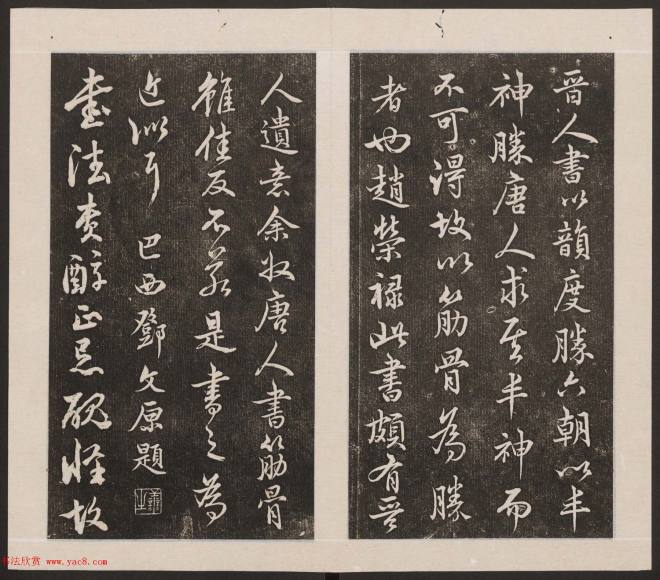 晉人書以韻度勝六朝以半
神勝唐人求其半神而
不可得故以筋骨為勝
者也趙榮祿此書頗有晉
人遺意余收唐人書筋骨
雖佳反不若是書之為
近似耳 巴西鄧文原題
書法貴醇正忌醜怪故
书法欣赏 www.yac8.com